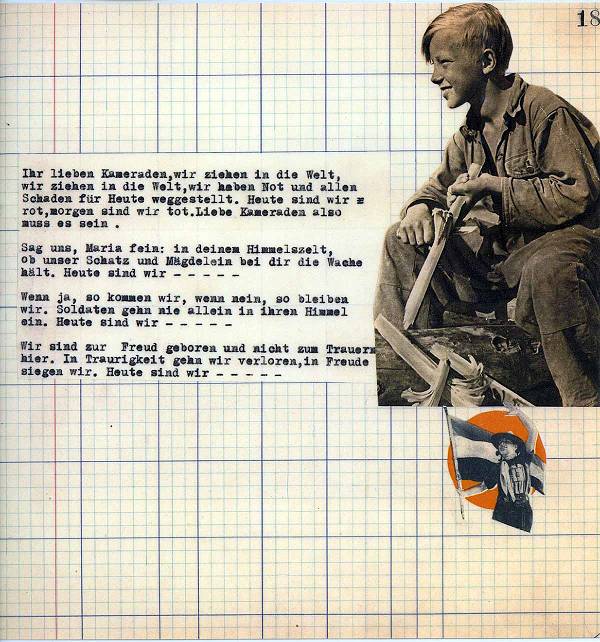 18
Ihr lieben Kameraden,wir ziehen in die Welt,
wir ziehen in die Welt,wir haben Not und allen
Schaden für Heute weggestellt. Heute sind wir =
rot,morgen sind wir tot.Liebe Kameraden also
muss es sein .
Sag uns, Maria fein: in deinem Himmelszelt,
ob unser Schatz und Mägdelein bei dir die Wache
hält. Heute sind wir - - - - -
Wenn ja, so kommen wir, wenn nein, so bleiben
wir. Soldaten gehn nie allein in ihren Himmel
ein. Heute sind wir - - - - -
Wir sind zur Freud geboren und nicht zum Trauern
hier. In Traurigkeit gehn wir verloren,in Freude
siegen wir. Heute sind wir - - - - -